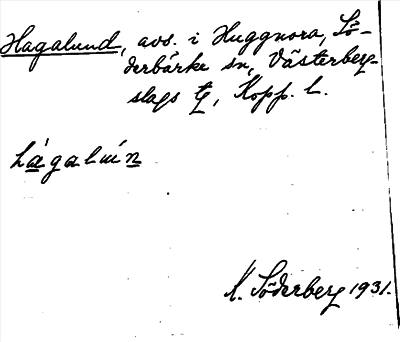 Hagalund, avs. i Huggnora, Sö-
derbärke sn, Västerberg-
slags tg, Kopp. l.
K. Söderberg 1931.